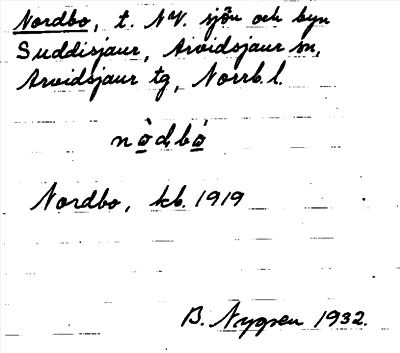 Nordbo, t. NV. sjön och byn
Suddisjaur, Arvidsjaur sn,
Arvidsjaur tg, Norrb. l.
nò̲dbó̲
Nordbo, kb. 1919
B. Nygren 1932.